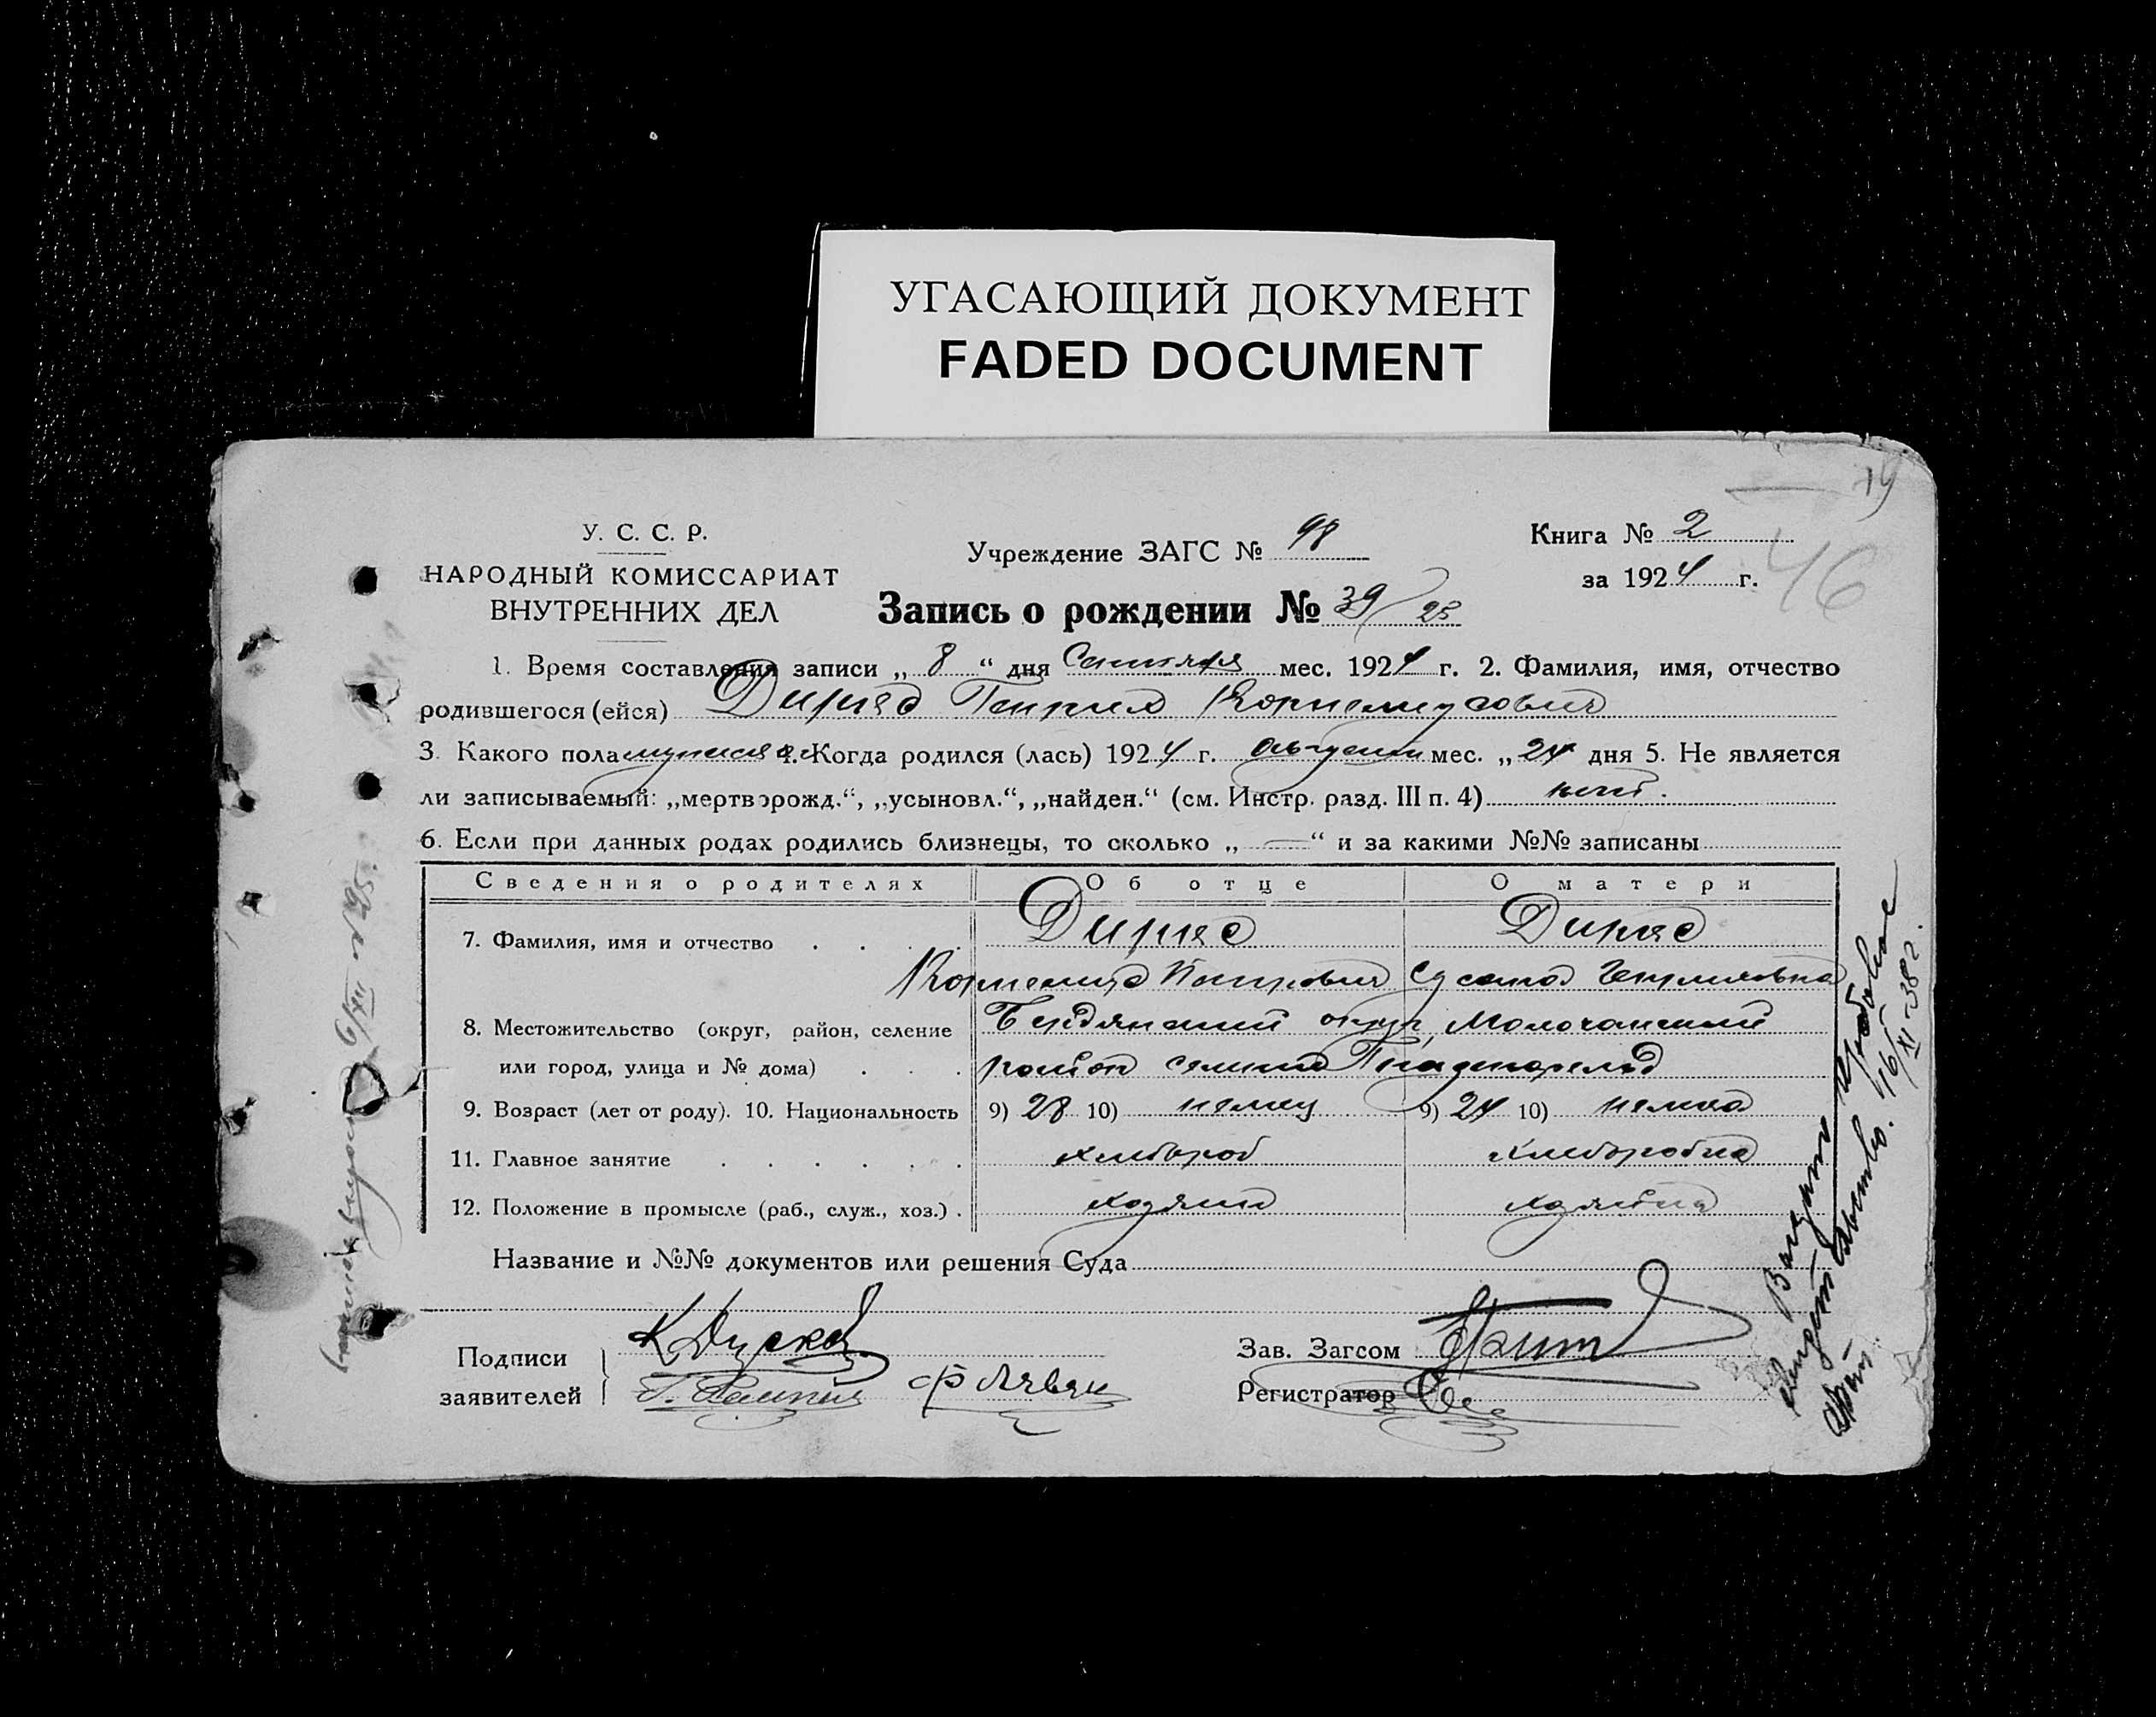 УГАСАЮЩИЙ ДОКУМЕНТ
FADED DOCUMENT
19
У. С. С. Р.
НАРОДНЫЙ КОМИССАРИАТ
ВНУТРЕННИХ ДЕЛ
Учреждение ЗАГС № 98
Книга № 2
за 1924 г.
46
Запись о рождении № 39/25
1. Время составления записи „ 8 “ дня Сентября мес. 1924 г. 2. Фамилия, имя, отчество
родившегося (ейся) Дирке Генрих Корнелиусович
3. Какого пола мужской 4. Когда родился (лась) 1924 г. Августа мес. „ 24 дня 5. Не является
ли записываемый: „мертворожд.“, „усыновл.“, „найден.“ (см. Инстр. разд. III п. 4) нет.
6. Если при данных родах родились близнецы, то сколько „ — “ и за какими №№ записаны
Сведения о родителях Об отце О матери
7. Фамилия, имя и отчество Дирке Дирке
Корнелиус Петрович Сусана Генриховна
8. Местожительство (округ, район, селение Бердянский округ, Молочанский
или город, улица и № дома) район селение Гнаденфельд
9. Возраст (лет от роду). 10. Национальность 9) 28 10) немец 9) 24 10) немка
11. Главное занятие хлебороб хлеборобка
12. Положение в промысле (раб., служ., хоз.) хозяин хозяйка
Название и №№ документов или решения Суда
Подписи
заявителей
К Дирксе
Зав. Загсом
Регистратор
6/XII №25.
Выдано повторное
свидетельство. 16/XI-38 г.